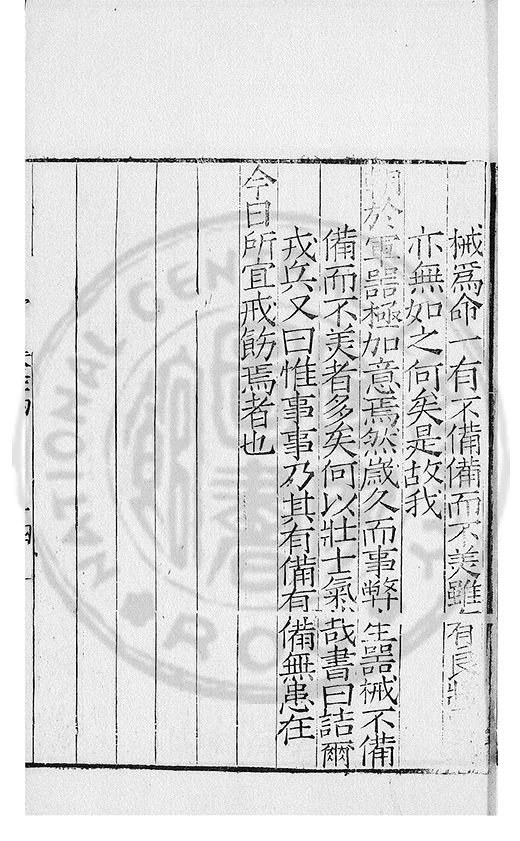 械爲命一有不備備而不美雖有良將
亦無如之何矣是故我
朝於軍器極加意焉然歲久而事弊生器械不備
備而不美者多矣何以壯士氣哉書曰詰爾
戎兵又曰惟事事乃其有備有備無患在
今日所宜戒飭焉者也